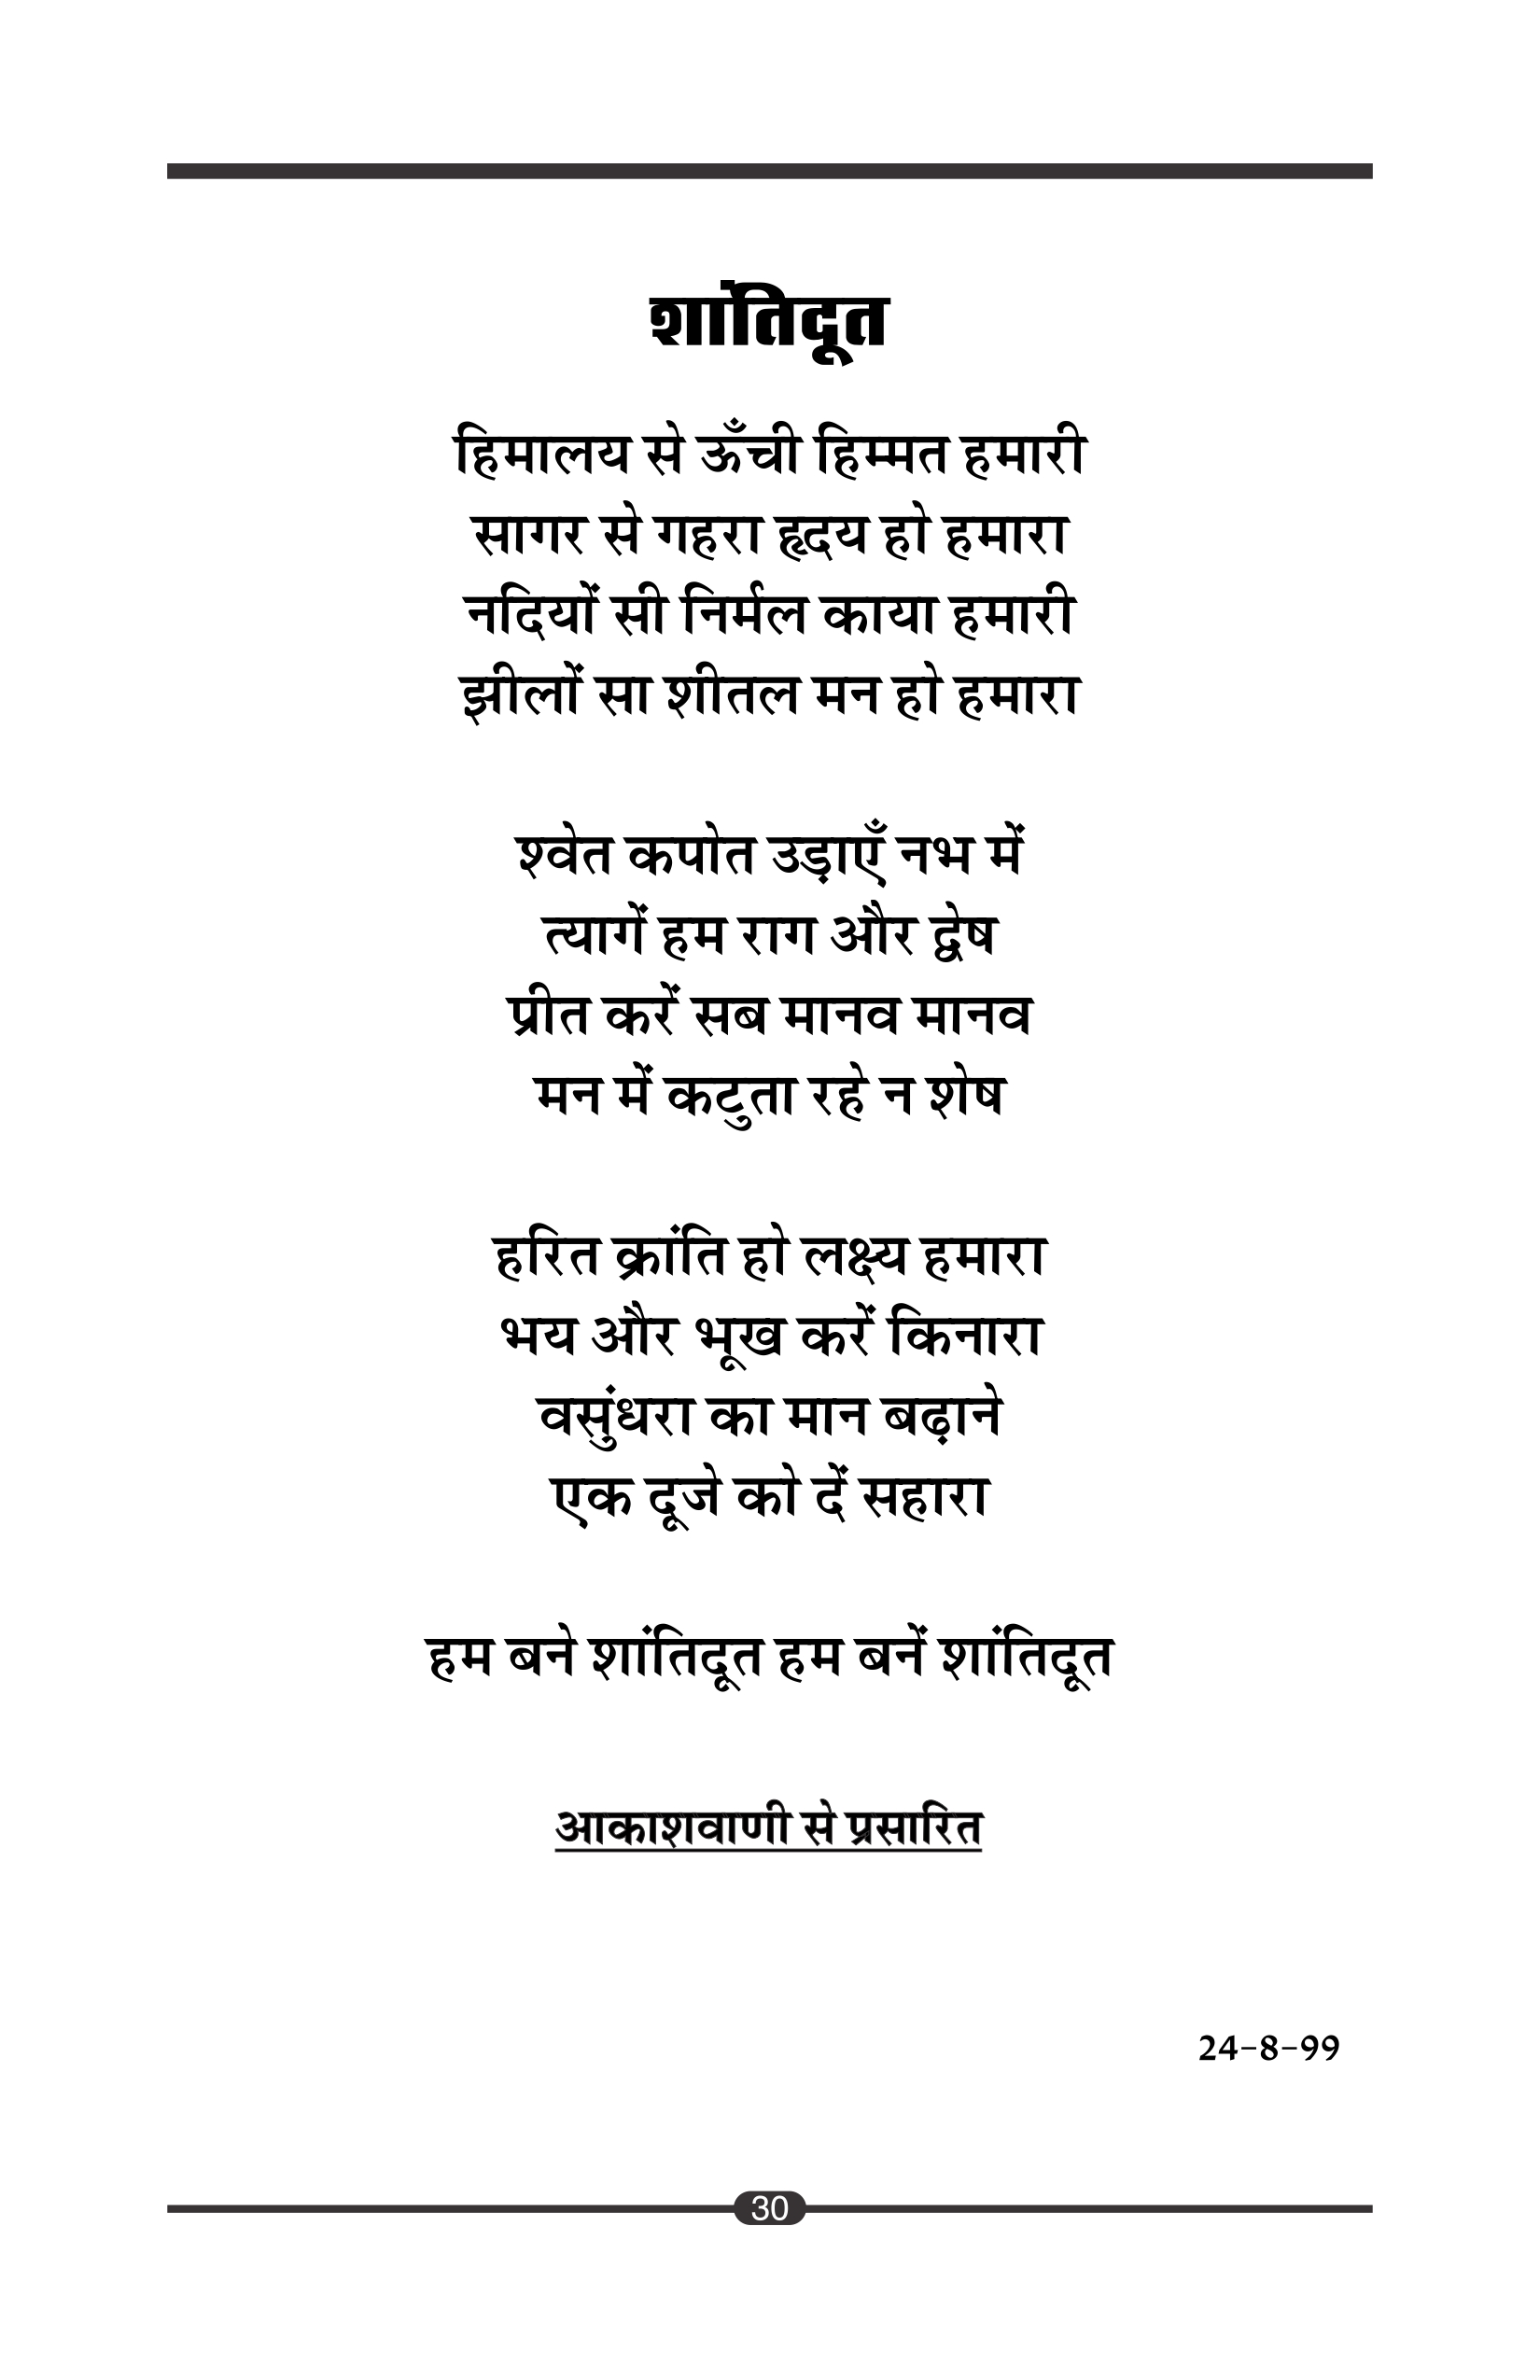 शांतिदूत
हिमालय से ऊँची हिम्मत हमारी
सागर से गहरा हृदय हो हमारा
नदियों सी निर्मल काया हमारी
झीलों सा शीतल मन हो हमारा
श्वेत कपोत उड़ाएँ नभ में
त्यागें हम राग और द्वेष
प्रीत करें सब मानव मानव
मन में कटुता रहे न शेष
हरित क्रांति हो लक्ष्य हमारा
भय और भूख करें किनारा
वसुंधरा का मान बढ़ाने
एक दूजे को दें सहारा
हम बने शांतिदूत हम बनें शांतिदूत
आकाशवाणी से प्रसारित
24-8-99
30